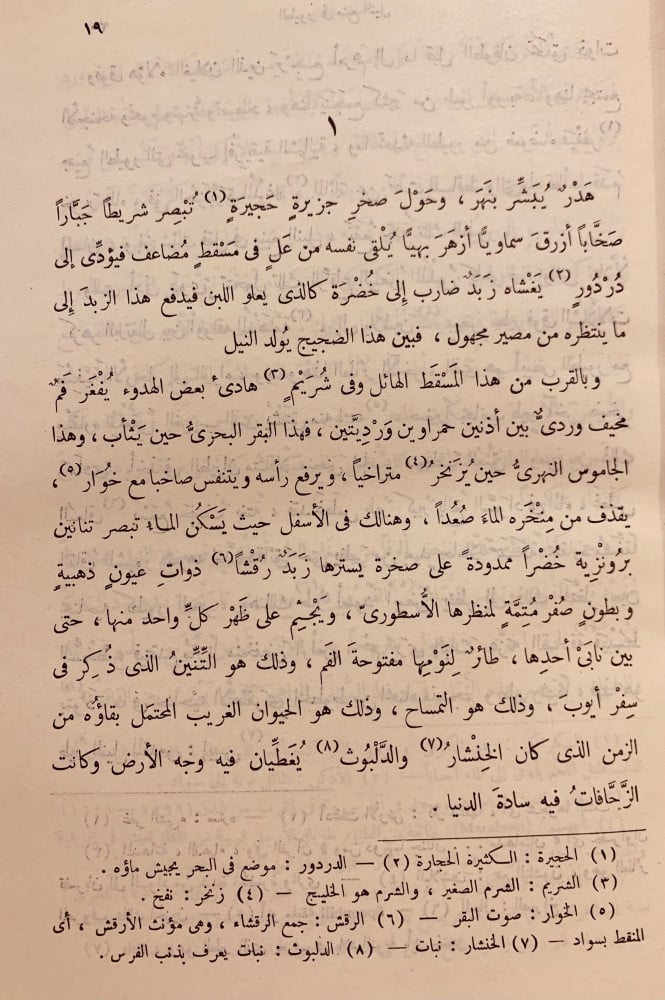 ١٩
١
هَدْرٌ يُبَشِّر بنَهَر ، وحَوْلَ صخرِ جزيرةٍ حَجِيرَةٍ (١) تُبْصِر شريطاً جَبَّاراً
صَخَّاباً أزرقَ سماويًّا أزهَرَ بهيًّا يُلْقِى نفسه من عَلٍ فى مَسْقطٍ مُضاعف فيؤدِّى إلى
دُرْدُورٍ (٢) يَغْشاه زَبَدٌ ضارب إلى خُضْرَة كالذى يعلو اللبن فيدفع هذا الزبدَ إلى
ما ينتظره من مصير مجهول ، فبين هذا الضجيج يُولد النيل
وبالقرب من هذا المَسْقَط الهائل وفى شُرَيْمٍ (٣) هادئ بعض الهدوء يُفْغَر فَمٌ
مخيف وردىٌّ بين أذنين حمراوين وَرْدِيَّتين ، فهذا البقر البحرىُّ حين يَتْأب ، وهذا
الجاموس النهرىُّ حين يُزَنخرُ (٤) متراخياً ، ويرفع رأسه ويتنفس صاخبا مع خُوَار (٥) ،
يقذف من مِنْخَره الماءَ صُعُداً ، وهنالك فى الأسفل حيث يَسْكُن الماء تبصر تنانين
برُونْزِية خُضْراً ممدودةً على صخرة يسترها زَبَدٌ رُقشاً (٦) ذواتِ عيونٍ ذهبيةٍ
وبطونٍ صُفْر مُتِمَّةٍ لمنظرها الأُسطورىّ ، ويَجْثِم على ظَهْر كلِّ واحد منها ، حتى
بين نابَىْ أحدِها ، طائرٌ لِنَوْمِها مفتوحةَ الفَم ، وذلك هو التِّنِّينُ الذى ذُكِر فى
سِفْر أيوبَ ، وذلك هو التمساح ، وذلك هو الحيوان الغريب المحتمَل بقاؤُه من
الزمن الذى كان الخِنْشارُ (٧) والدَّلْبُوث (٨) يُغَطِّيان فيه وجه الأرض وكانت
الزَّحَّافاتُ فيه سادةَ الدنيا .
(١) الحجيرة : الكثيرة الحجارة (٢) — الدردور : موضع فى البحر يجيش ماؤه .
(٣) الشريم : الشرم الصغير ، والشرم هو الخليج — (٤) زنخر : نفخ .
(٥) الخوار : صوت البقر — (٦) الرقش : جمع الرقشاء ، وهى مؤنث الأرقش ، أى
المنقط بسواد — (٧) الخنشار : نبات — (٨) الدلبوث : نبات يعرف بذنب الفرس .